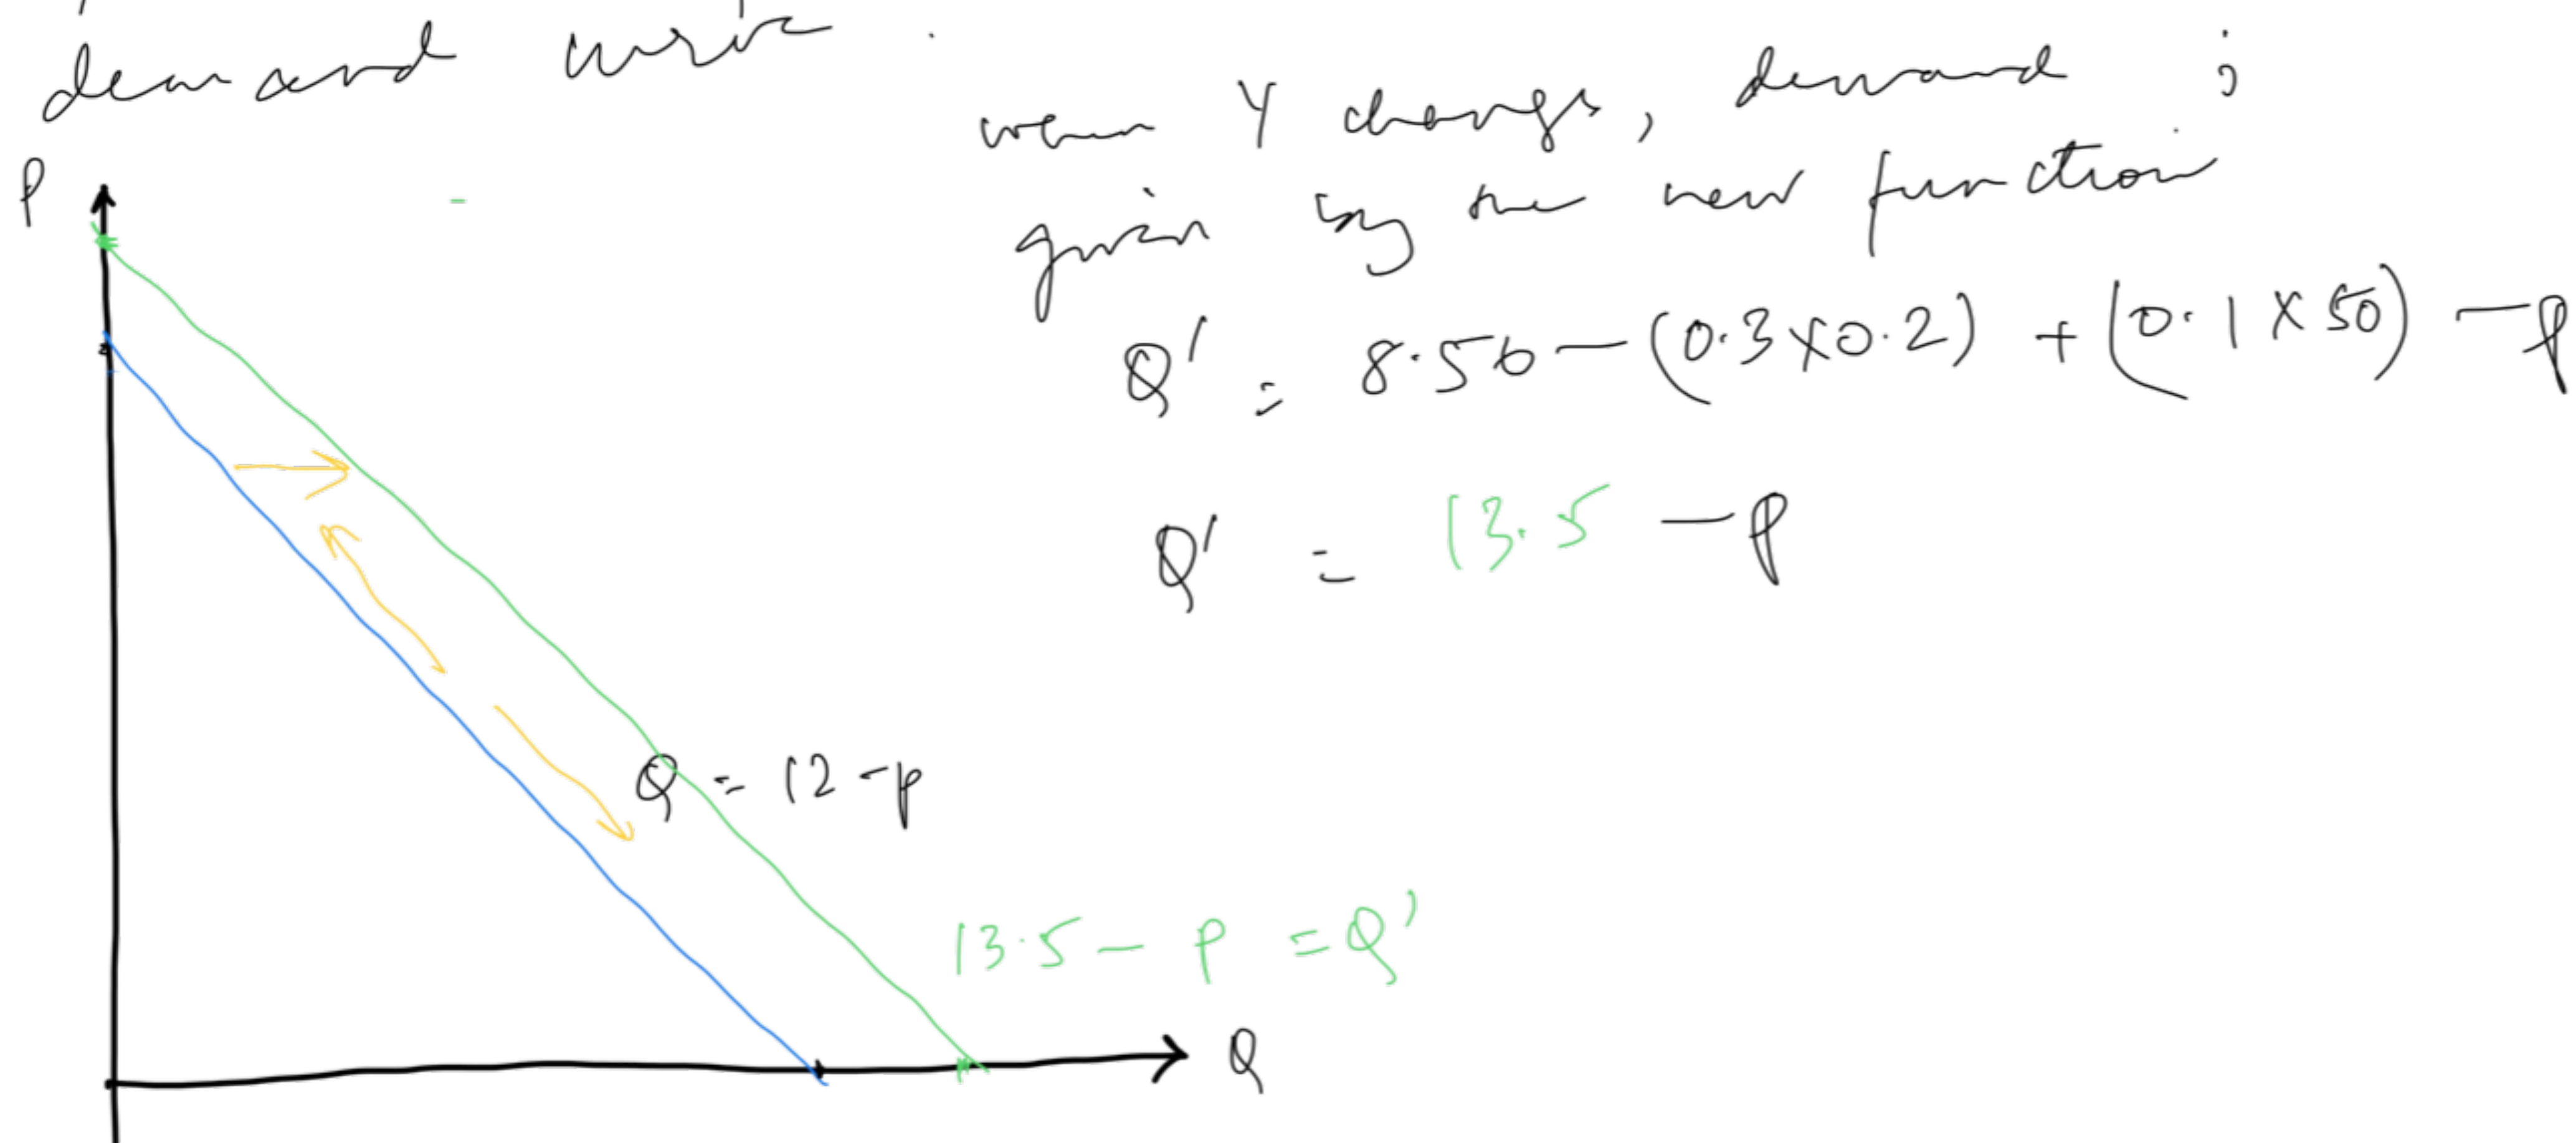 demand curve .
when Y changes, demand is
given by the new function
P
Q' = 8.56 - (0.3 X 0.2) + (0.1 X 50) - p
Q' = 13.5 - p
Q = 12 - p
13.5 - p = Q'
Q